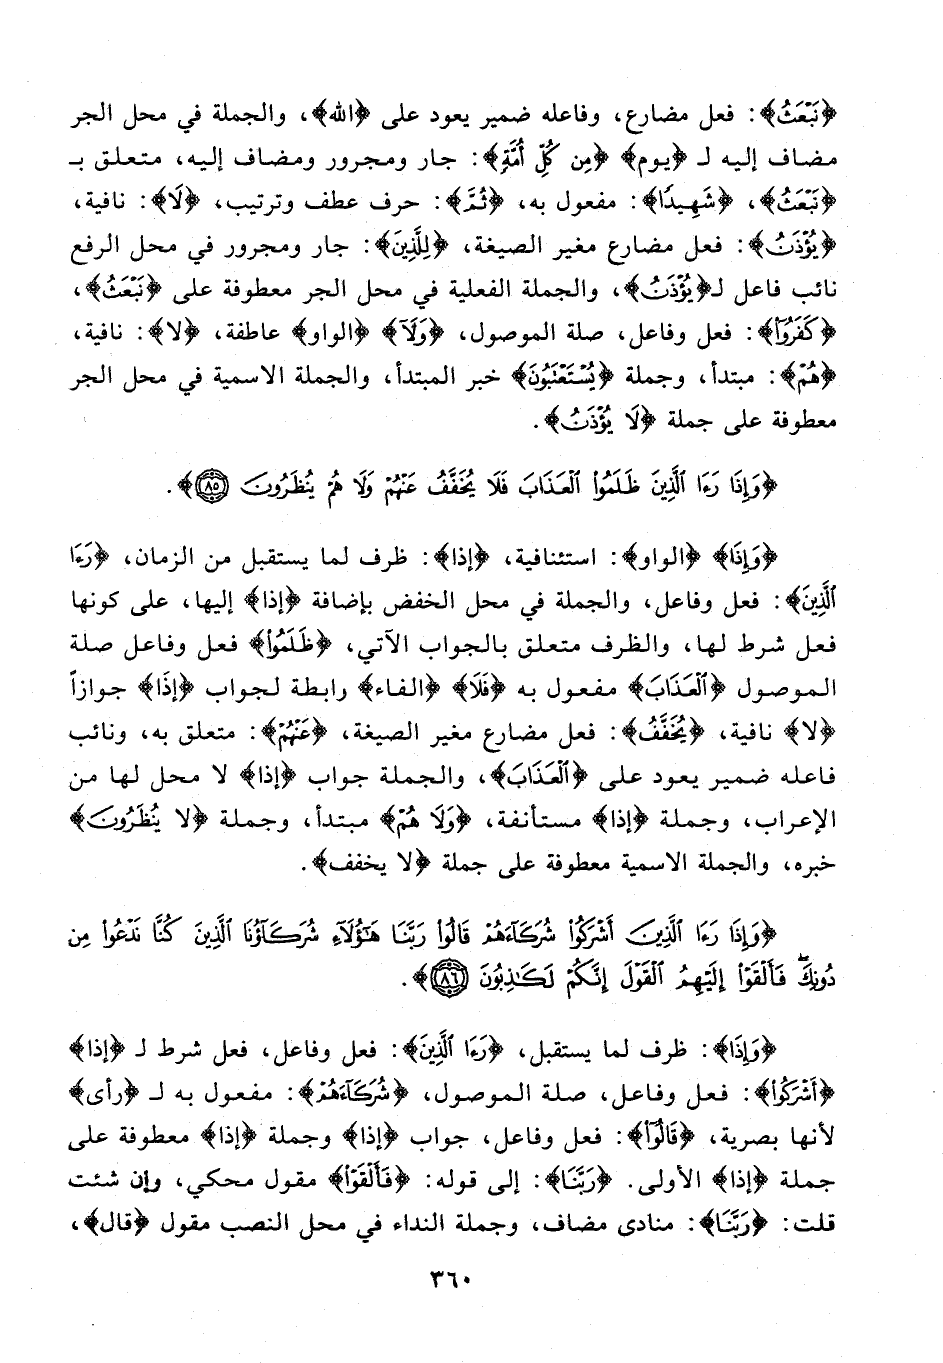 ﴿نَبْعَثُ﴾: فعل مضارع، وفاعله ضمير يعود على ﴿الله﴾، والجملة في محل الجر
مضاف إليه لـ ﴿يوم﴾ ﴿مِن كُلِّ أُمَّةٍ﴾: جار ومجرور ومضاف إليه، متعلق بـ
﴿نَبْعَثُ﴾، ﴿شَهِيدًا﴾: مفعول به، ﴿ثُمَّ﴾: حرف عطف وترتيب، ﴿لَا﴾: نافية،
﴿يُؤْذَنُ﴾: فعل مضارع مغير الصيغة، ﴿لِلَّذِينَ﴾: جار ومجرور في محل الرفع
نائب فاعل لـ﴿يُؤْذَنُ﴾، والجملة الفعلية في محل الجر معطوفة على ﴿نَبْعَثُ﴾،
﴿كَفَرُوا۟﴾: فعل وفاعل، صلة الموصول، ﴿وَلَا﴾ ﴿الواو﴾ عاطفة، ﴿لا﴾: نافية،
﴿هُمْ﴾: مبتدأ، وجملة ﴿يُسْتَعْتَبُونَ﴾ خبر المبتدأ، والجملة الاسمية في محل الجر
معطوفة على جملة ﴿لَا يُؤْذَنُ﴾.
﴿وَإِذَا رَءَا ٱلَّذِينَ ظَلَمُوا۟ ٱلْعَذَابَ فَلَا يُخَفَّفُ عَنْهُمْ وَلَا هُمْ يُنظَرُونَ ٨٥﴾.
﴿وَإِذَا﴾ ﴿الواو﴾: استئنافية، ﴿إذا﴾: ظرف لما يستقبل من الزمان، ﴿رَءَا
ٱلَّذِينَ﴾: فعل وفاعل، والجملة في محل الخفض بإضافة ﴿إذا﴾ إليها، على كونها
فعل شرط لها، والظرف متعلق بالجواب الآتي، ﴿ظَلَمُوا۟﴾ فعل وفاعل صلة
الموصول ﴿ٱلْعَذَابَ﴾ مفعول به ﴿فَلَا﴾ ﴿الفاء﴾ رابطة لجواب ﴿إذَا﴾ جوازاً
﴿لا﴾ نافية، ﴿يُخَفَّفُ﴾: فعل مضارع مغير الصيغة، ﴿عَنْهُمْ﴾: متعلق به، ونائب
فاعله ضمير يعود على ﴿ٱلْعَذَابَ﴾، والجملة جواب ﴿إذا﴾ لا محل لها من
الإعراب، وجملة ﴿إذا﴾ مستأنفة، ﴿وَلَا هُمْ﴾ مبتدأ، وجملة ﴿لا يُنظَرُونَ﴾
خبره، والجملة الاسمية معطوفة على جملة ﴿لا يخفف﴾.
﴿وَإِذَا رَءَا ٱلَّذِينَ أَشْرَكُوا۟ شُرَكَآءَهُمْ قَالُوا۟ رَبَّنَا هَٰٓؤُلَآءِ شُرَكَآؤُنَا ٱلَّذِينَ كُنَّا نَدْعُوا۟ مِن
دُونِكَ ۖ فَأَلْقَوْا۟ إِلَيْهِمُ ٱلْقَوْلَ إِنَّكُمْ لَكَٰذِبُونَ ٨٦﴾.
﴿وَإِذَا﴾: ظرف لما يستقبل، ﴿رَءَا ٱلَّذِينَ﴾: فعل وفاعل، فعل شرط لـ ﴿إذا﴾
﴿أَشْرَكُوا۟﴾: فعل وفاعل، صلة الموصول، ﴿شُرَكَآءَهُمْ﴾: مفعول به لـ ﴿رأى﴾
لأنها بصرية، ﴿قَالُوا۟﴾: فعل وفاعل، جواب ﴿إذا﴾ وجملة ﴿إذا﴾ معطوفة على
جملة ﴿إذا﴾ الأولى. ﴿رَبَّنَا﴾: إلى قوله: ﴿فَأَلْقَوْا۟﴾ مقول محكي، وإن شئت
قلت: ﴿رَبَّنَا﴾: منادى مضاف، وجملة النداء في محل النصب مقول ﴿قال﴾،
٣٦٠